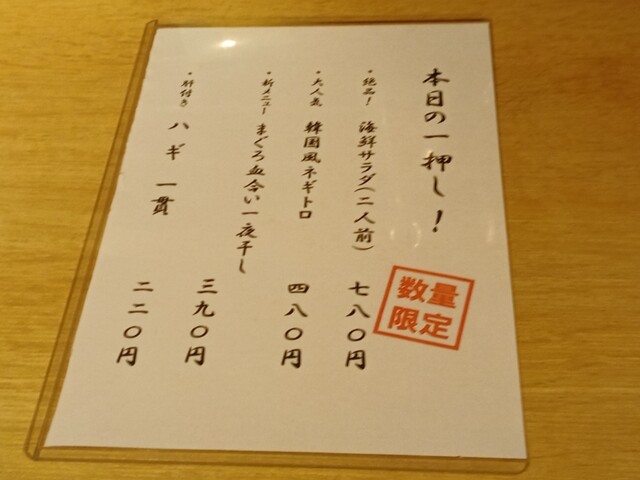 本日の一押し!
数量
限定
・絶品! 海鮮サラダ(二人前) 七八〇円
・大人気 韓国風ネギトロ 四八〇円
・新メニュー まぐろ血合い一夜干し 三九〇円
・肝付き ハギ 一貫 二二〇円